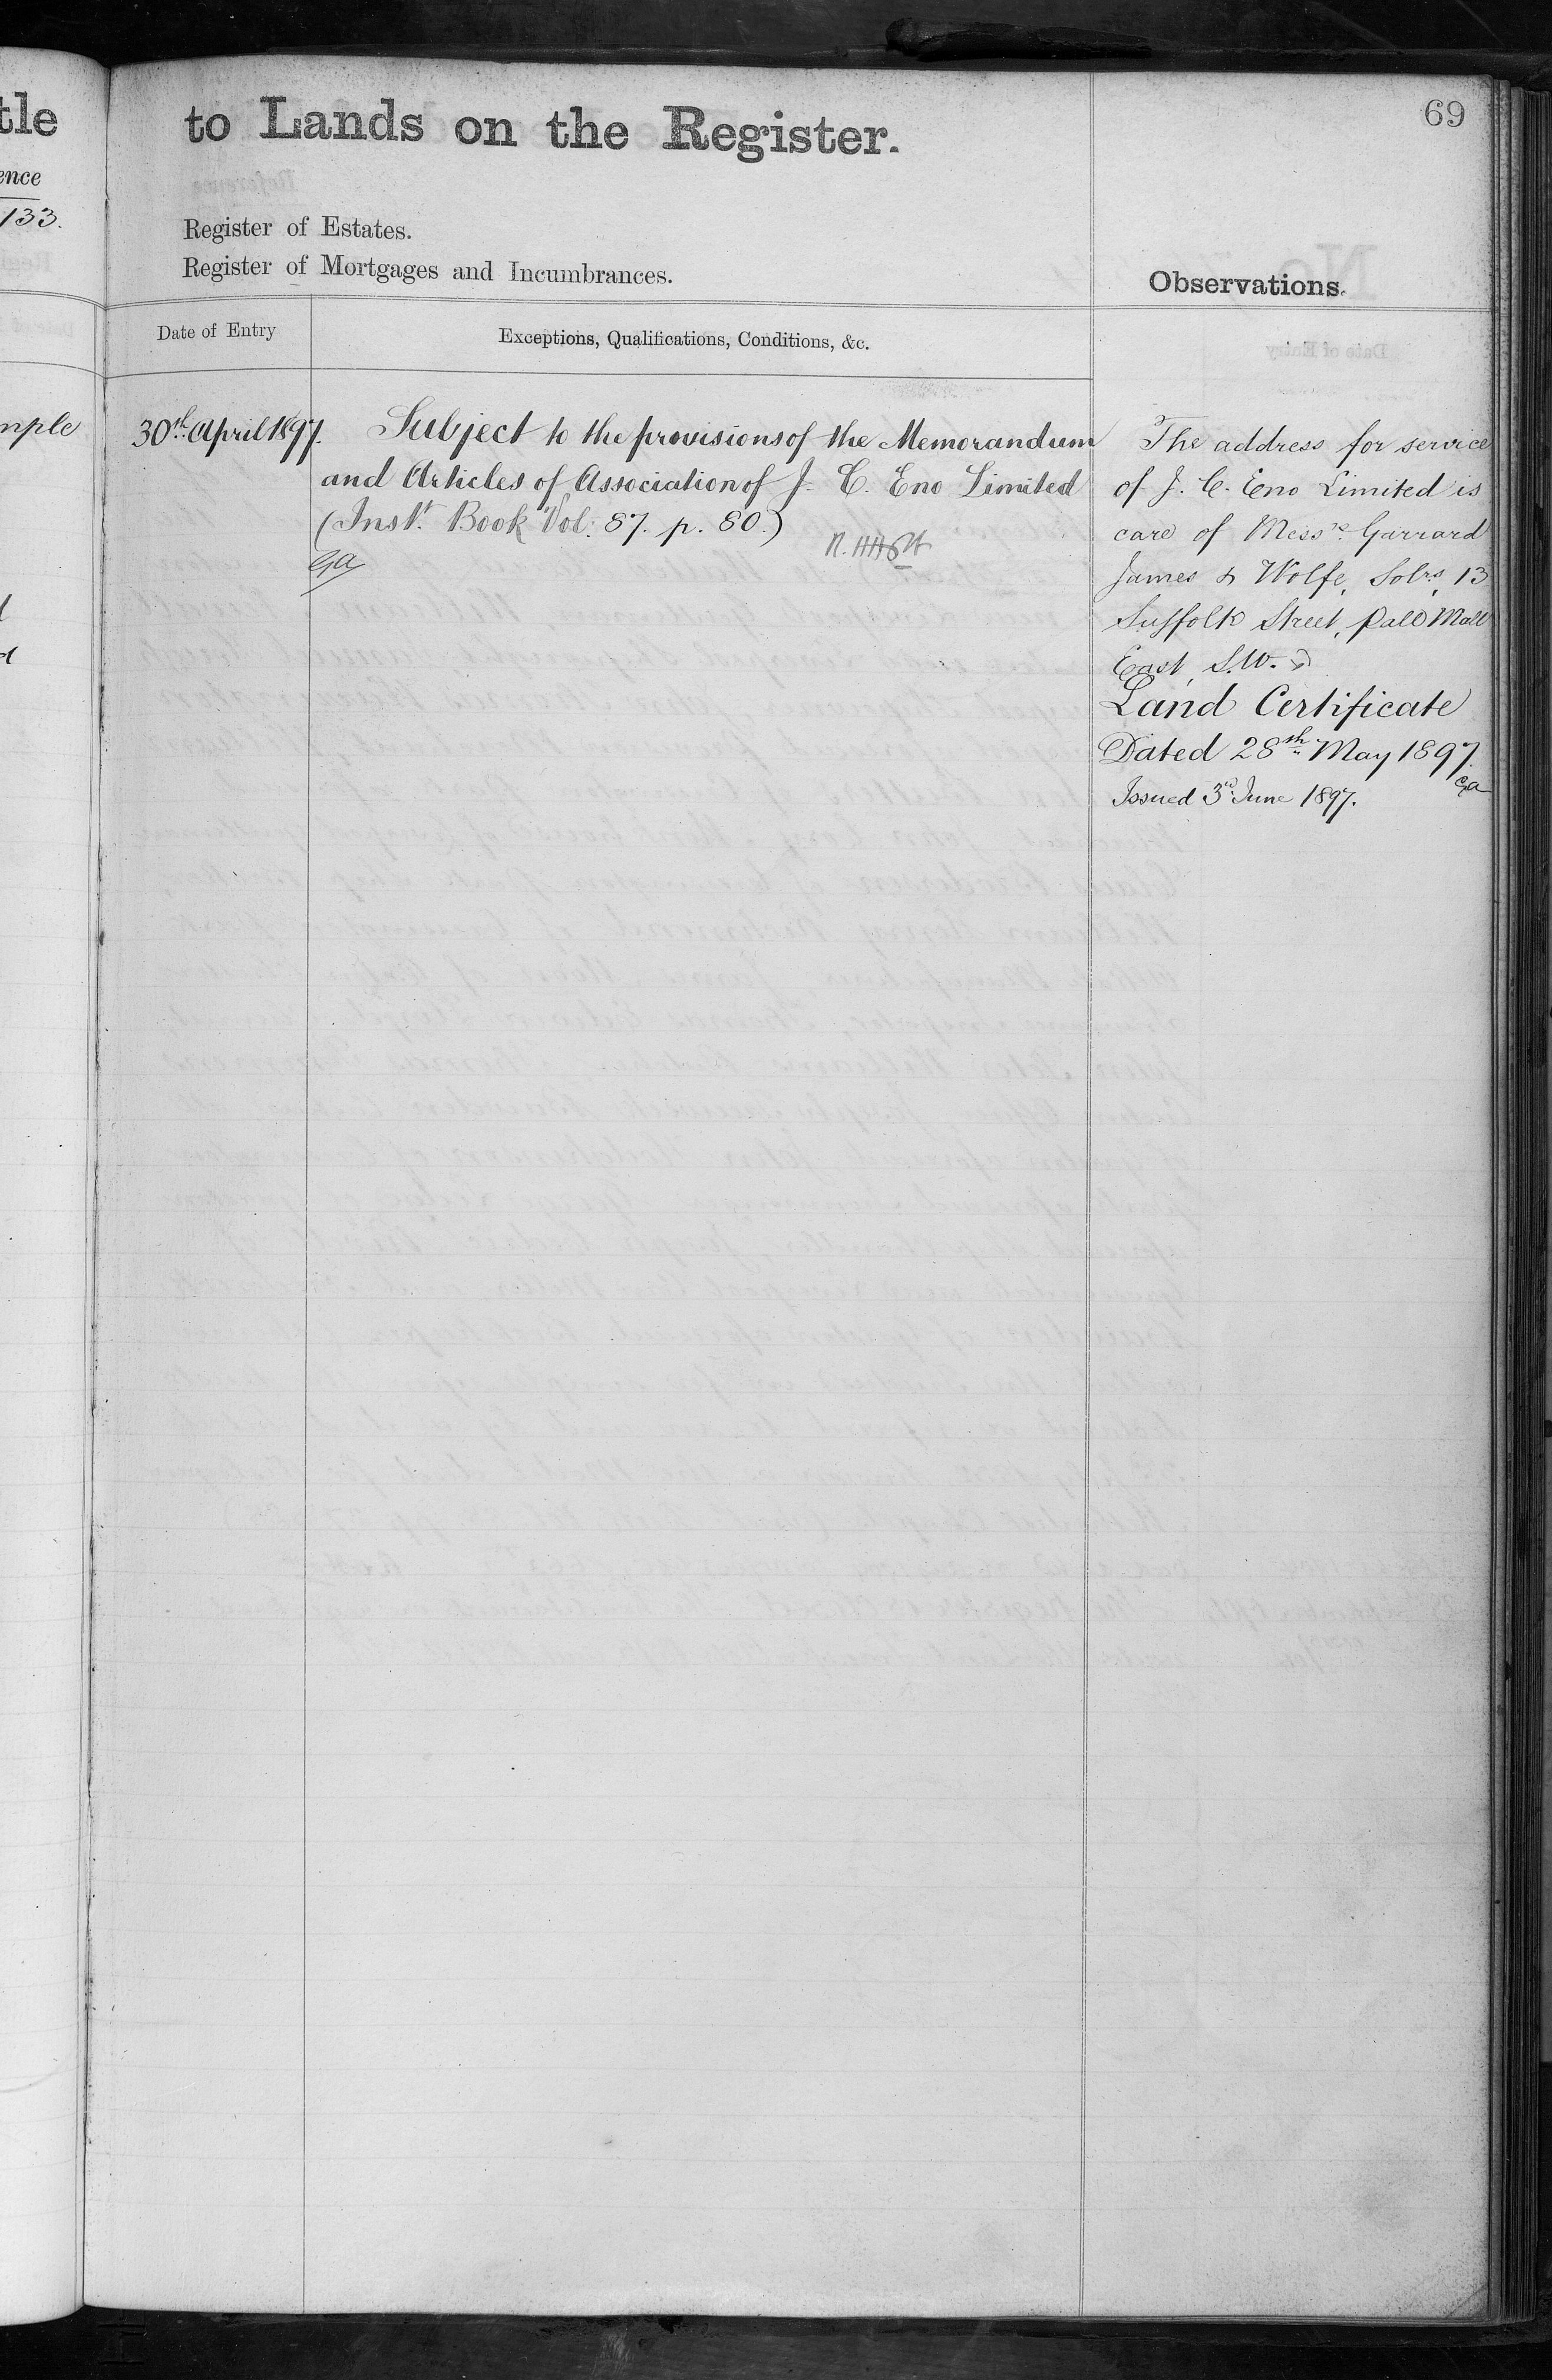 tle
ence
133.
mple
to Lands on the Register.
69
Register of Estates.
Register of Mortgages and Incumbrances.
Observations.
Date of Entry
Exceptions, Qualifications, Conditions, &c.
30th April 1897.
Subject to the provisions of the Memorandum
and Articles of Association of J. C. Eno Limited
(Inst. Book Vol: 87. p. 80.)
Ga
The address for service
of J. C. Eno Limited is
care of Messrs. Garrard
James & Wolfe, Solrs, 13
Suffolk Street, Pall Mall
East, S.W.
Land Certificate
Dated 28th May 1897.
Ga
Issued 3rd June 1897.